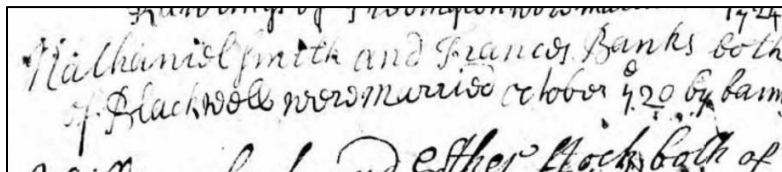 of were 1724
Nathaniel Smith and Frances Banks both
of Blackwell were married october ye 20 by bann
Esther Stock both of